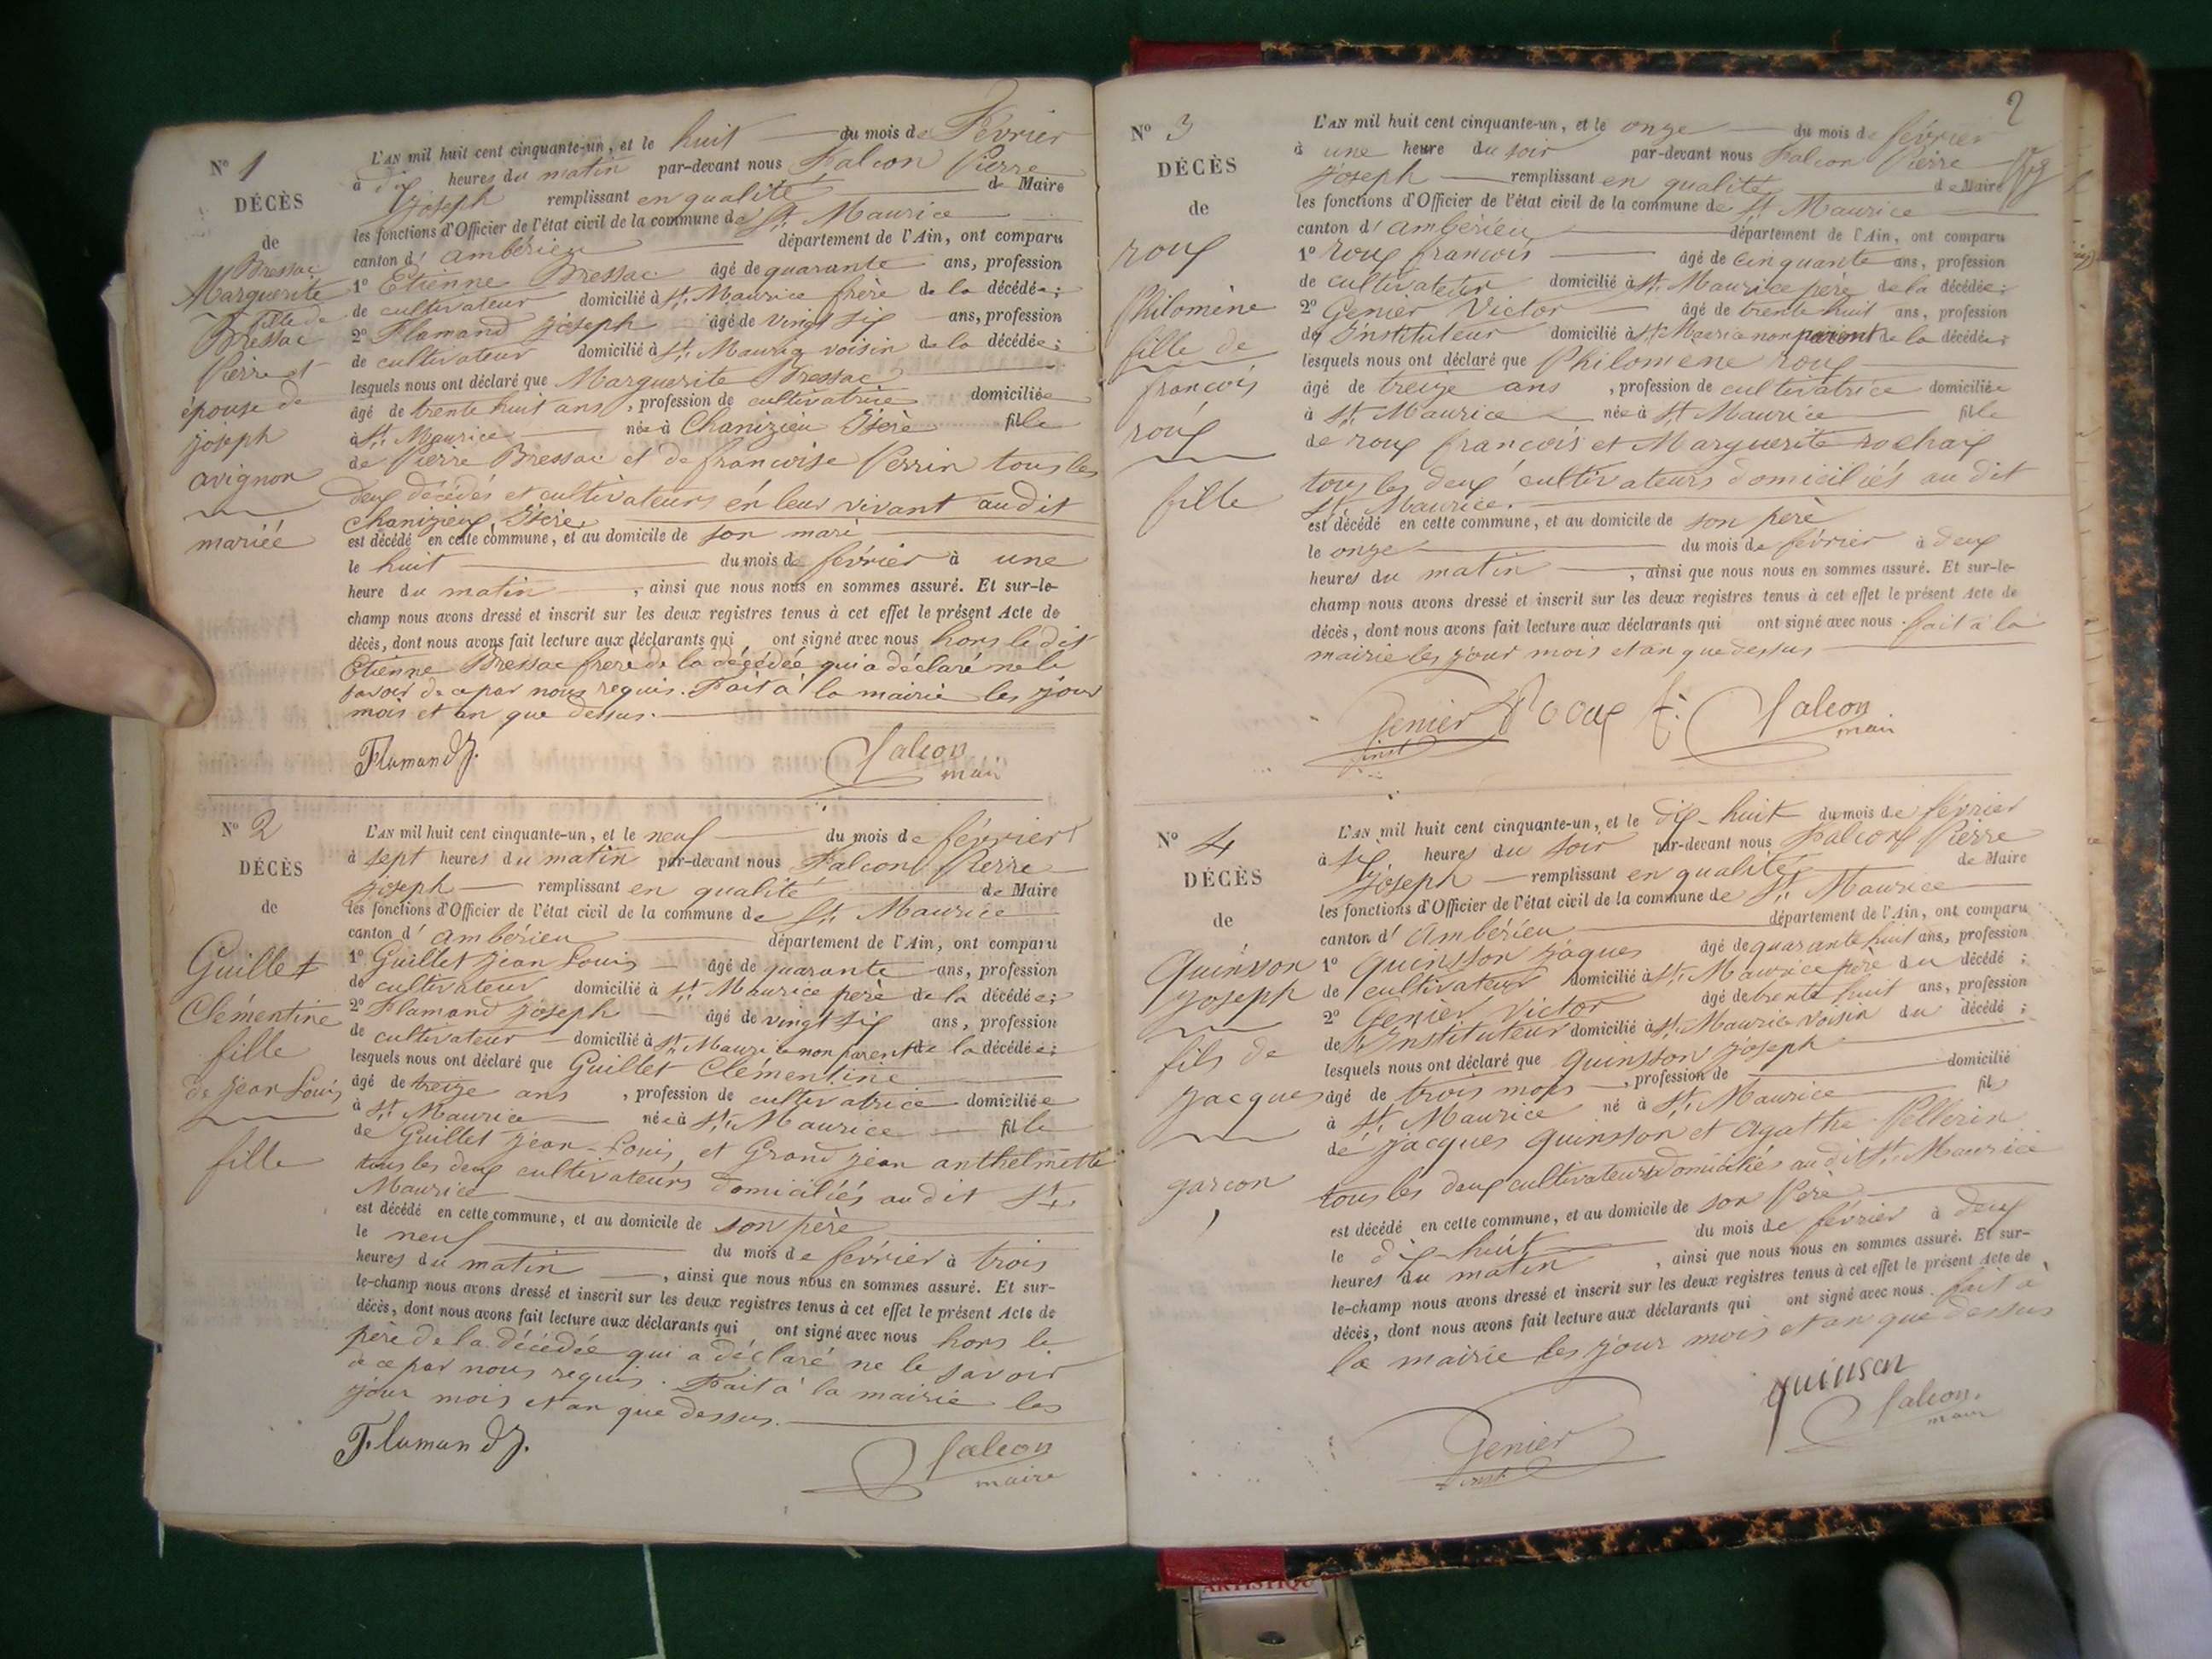 N° 1
DÉCÈS
de
Bressac
Marguerite
fille de
Bressac
Pierre et
épouse de
joseph
avignon
mariée
L'AN mil huit cent cinquante-un, et le huit du mois de Février
à dix heures du matin par-devant nous Falcon Pierre
Joseph remplissant en qualité de Maire
les fonctions d'Officier de l'état civil de la commune de St. Maurice
canton d'ambérieu département de l'Ain, ont comparu
1° Etienne Bressac âgé de quarante ans, profession
de cultivateur domicilié à St. Maurice frère de la décédée;
2° Flamand joseph âgé de vingt six ans, profession
de cultivateur domicilié à St. Maurice voisin de la décédée;
lesquels nous ont déclaré que Marguerite Bressac
âgé de trente huit ans, profession de cultivatrice domiciliée
à St. Maurice née à Chanizieu Isère fille
de Pierre Bressac et de françoise Perrin tous les
deux décédés et cultivateurs en leur vivant audit
Chanizieu Isère.
est décédé en cette commune, et au domicile de son mari
le huit du mois de février à une
heure du matin, ainsi que nous nous en sommes assuré. Et sur-le-
champ nous avons dressé et inscrit sur les deux registres tenus à cet effet le présent Acte de
décès, dont nous avons fait lecture aux déclarants qui ont signé avec nous hors le dit
Etienne Bressac frere de la décédée qui a déclaré ne le
savoir de ce par nous requis. Fait à la mairie les jour
mois et an que dessus.
Flamand J.
Falcon
maire
N° 2
DÉCÈS
de
Guillet
Clémentine
fille
de jean Louis
fille
L'AN mil huit cent cinquante-un, et le neuf du mois de février
à sept heures du matin par-devant nous Falcon Pierre
joseph remplissant en qualité de Maire
les fonctions d'Officier de l'état civil de la commune de St. Maurice
canton d'ambérieu département de l'Ain, ont comparu
1° Guillet jean Louis âgé de quarante ans, profession
de cultivateur domicilié à St. Maurice père de la décédée;
2° Flamand joseph âgé de vingt six ans, profession
de cultivateur domicilié à St. Maurice non parent de la décédée;
lesquels nous ont déclaré que Guillet Clémentine
âgé de treize ans, profession de cultivatrice domiciliée
à St. Maurice née à St. Maurice fille
de Guillet jean-Louis, et Grand jean anthelmette
tous les deux cultivateurs domiciliés audit St.
Maurice
est décédé en cette commune, et au domicile de son père
le neuf du mois de février à trois
heures du matin, ainsi que nous nous en sommes assuré. Et sur-
le-champ nous avons dressé et inscrit sur les deux registres tenus à cet effet le présent Acte de
décès, dont nous avons fait lecture aux déclarants qui ont signé avec nous hors le
père de la décédée qui a déclaré ne le savoir
de ce par nous requis. Fait à la mairie les
jour mois et an que dessus.
Flamand J.
Falcon
maire
2
N° 3
DÉCÈS
de
roux
Philomène
fille de
francois
roux
fille
L'AN mil huit cent cinquante-un, et le onze du mois de février
à une heure du soir par-devant nous Falcon Pierre
joseph remplissant en qualité de Maire
les fonctions d'Officier de l'état civil de la commune de St. Maurice
canton d'ambérieu département de l'Ain, ont comparu
1° roux francois âgé de cinquante ans, profession
de cultivateur domicilié à St. Maurice père de la décédée;
2° Genier Victor âgé de trente huit ans, profession
de Instituteur domicilié à St. Maurice non parent de la décédée;
lesquels nous ont déclaré que Philomene roux
âgé de treize ans, profession de cultivatrice domiciliée
à St. Maurice née à St. Maurice fille
de roux francois et Marguerite rochaix
tous les deux cultivateurs domiciliés au dit
St. Maurice.
est décédé en cette commune, et au domicile de son père
le onze du mois de février à deux
heures du matin, ainsi que nous nous en sommes assuré. Et sur-le-
champ nous avons dressé et inscrit sur les deux registres tenus à cet effet le présent Acte de
décès, dont nous avons fait lecture aux déclarants qui ont signé avec nous. fait à la
mairie les jour mois et an que dessus
Genier Roux f. Falcon
inst. maire
N° 4
DÉCÈS
de
Quinsson
joseph
fils de
jacques
garcon
L'AN mil huit cent cinquante-un, et le dix-huit du mois de février
à six heures du soir par-devant nous Falcon Pierre
joseph remplissant en qualité de Maire
les fonctions d'Officier de l'état civil de la commune de St. Maurice
canton d'Ambérieu département de l'Ain, ont comparu
1° Quinsson jâques âgé de quarante huit ans, profession
de cultivateur domicilié à St. Maurice père du décédé;
2° Genier Victor âgé de trente huit ans, profession
de Instituteur domicilié à St. Maurice voisin du décédé;
lesquels nous ont déclaré que quinsson joseph
âgé de trois mois, profession de domicilié
à St. Maurice né à St. Maurice fils
de jacques quinsson et Agathe Pellerin
tous les deux cultivateurs domiciliés au dit St. Maurice
est décédé en cette commune, et au domicile de son Père
le dix-huit du mois de février à deux
heures du matin, ainsi que nous nous en sommes assuré. Et sur-
le-champ nous avons dressé et inscrit sur les deux registres tenus à cet effet le présent Acte de
décès, dont nous avons fait lecture aux déclarants qui ont signé avec nous. fait à
la mairie les jour mois et an que dessus
quinson
Genier Falcon
inst. maire
ARTISTIQU